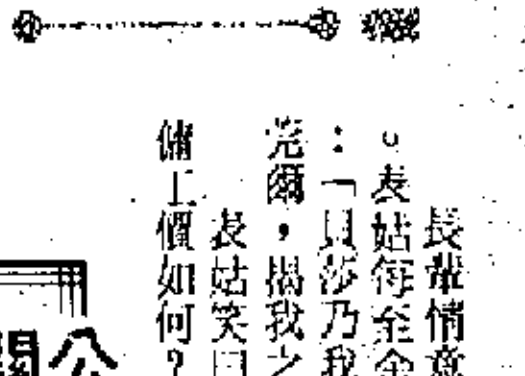 長輩情意
。表姑每至余
：「貝莎乃我
莞爾，揭我之
表姑笑曰
傭工價如何？
公